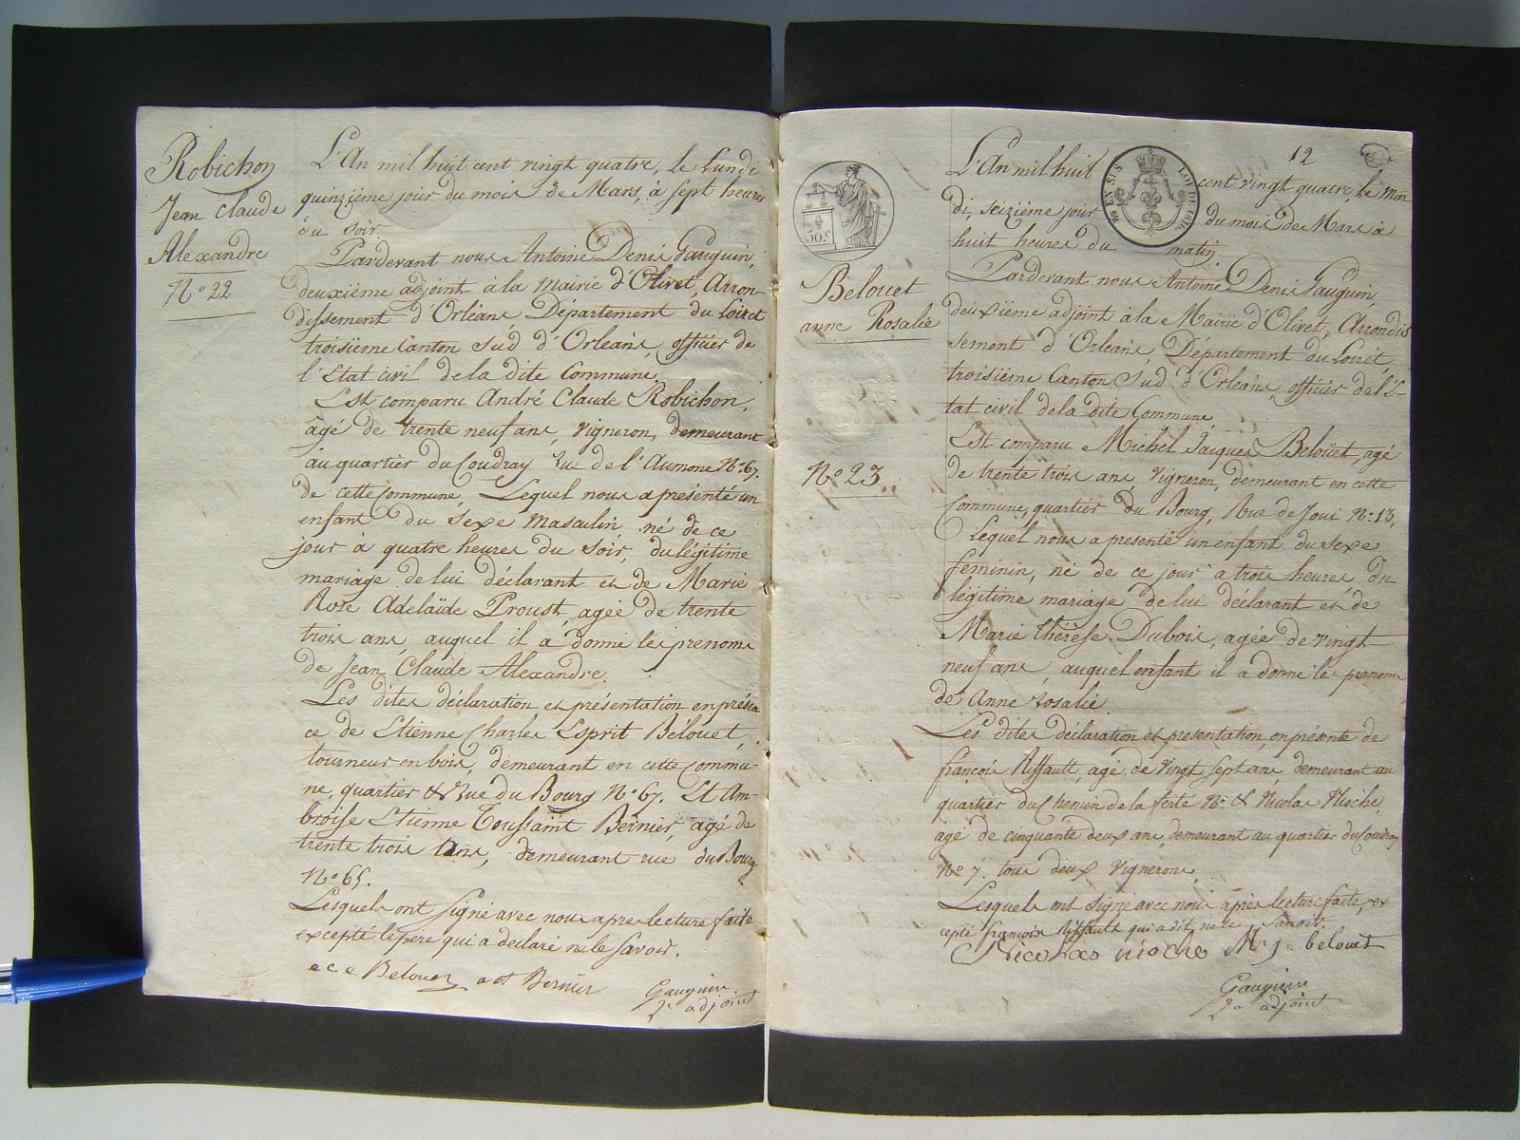 Robichon
Jean Claude
Alexandre
N° 22
L'An mil huit cent vingt quatre, le Lundi
quinzième jour du mois de Mars, à sept heures
du soir.
Pardevant nous Antoine Denis Gauguin,
deuxième adjoint à la Mairie d'Olivet, Arron-
dissement d'Orléans Département du Loiret
troisième Canton Sud d'Orléans, officier de
l'Etat civil de la dite Commune,
Est comparu André Claude Robichon,
âgé de trente neuf ans, vigneron, demeurant
au quartier du Coudray rue de l'Aumone N° 67.
de cette commune, Lequel nous a présenté un
enfant du sexe masculin, né de ce
jour à quatre heures du soir, du légitime
mariage de lui déclarant et de Marie
Rose Adelaïde Proust, agée de trente
trois ans, auquel il a donné les prenoms
de Jean Claude Alexandre.
Les dites déclaration et présentation en présen-
ce de Etienne Charles Esprit Bélouet,
tourneur en bois, demeurant en cette commu-
ne, quartier & rue du Bourg N° 67. Et Am-
broise Etienne Toussaint Bernier, agé de
trente trois ans, demeurant rue du Bourg
N° 65.
Lesquels ont signé avec nous apres lecture faite
excepté le père qui a déclaré ne le savoir.
e c e Belouet a et Bernier
Gauguin
2e adjoint
12
Belouet
anne Rosalie
N° 23
L'An mil huit cent vingt quatre, le Mar-
di, seizième jour du mois de Mars à
huit heures du matin.
Pardevant nous Antoine Denis Gauguin,
deuxième adjoint à la Mairie d'Olivet, Arrondis
sement d'Orléans, Département du Loiret,
troisième Canton Sud d'Orléans, officier de l'E-
tat civil de la dite Commune,
Est comparu Michel Jacques Belouet, agé
de trente trois ans vigneron, demeurant en cette
Commune, quartier du Bourg, Rue de Joui N° 13,
Lequel nous a presenté un enfant du sexe
feminin, né de ce jour a trois heures, du
légitime mariage de lui déclarant et de
Marie Thérèse Dubois, agée de vingt
neuf ans, auquel enfant il a donné les prenoms
de Anne rosalie.
Les dites déclaration et presentation, en présence de
françois Riffault, agé de vingt sept ans, demeurant au
quartier du Chemin de la ferté N° & Nicolas Nioche,
agé de cinquante deux ans, demeurant au quartier du Coudray
N° 7. tous deux vignerons,
Lesquels ont signé avec nous après lecture faite, ex
cepté françois Riffault qui a dit ne le savoir.
Nicolas nioche M. j. belouet
Gauguin
2e adjoint